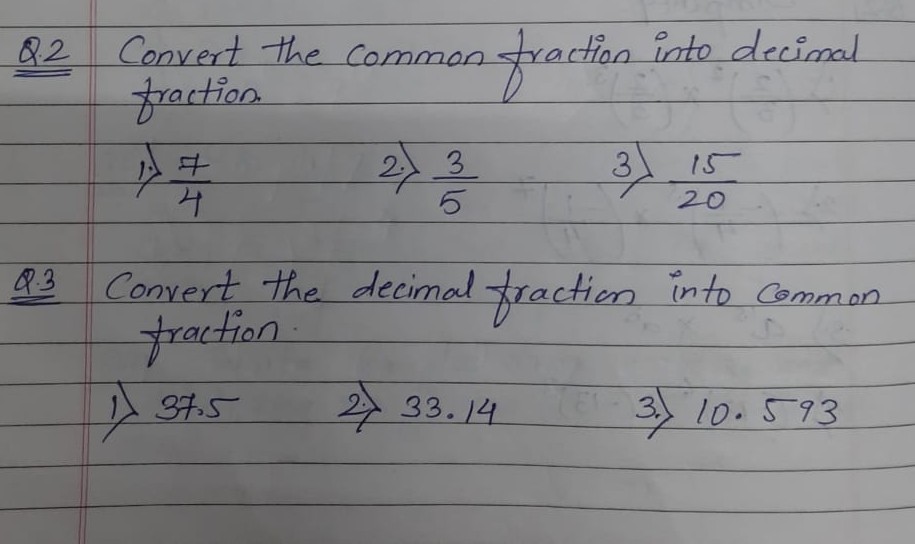 Q.2 Convert the common fraction into decimal
fraction.
1) 7/4 2) 3/5 3) 15/20
Q.3 Convert the decimal fraction into common
fraction.
1) 37.5 2) 33.14 3) 10.593